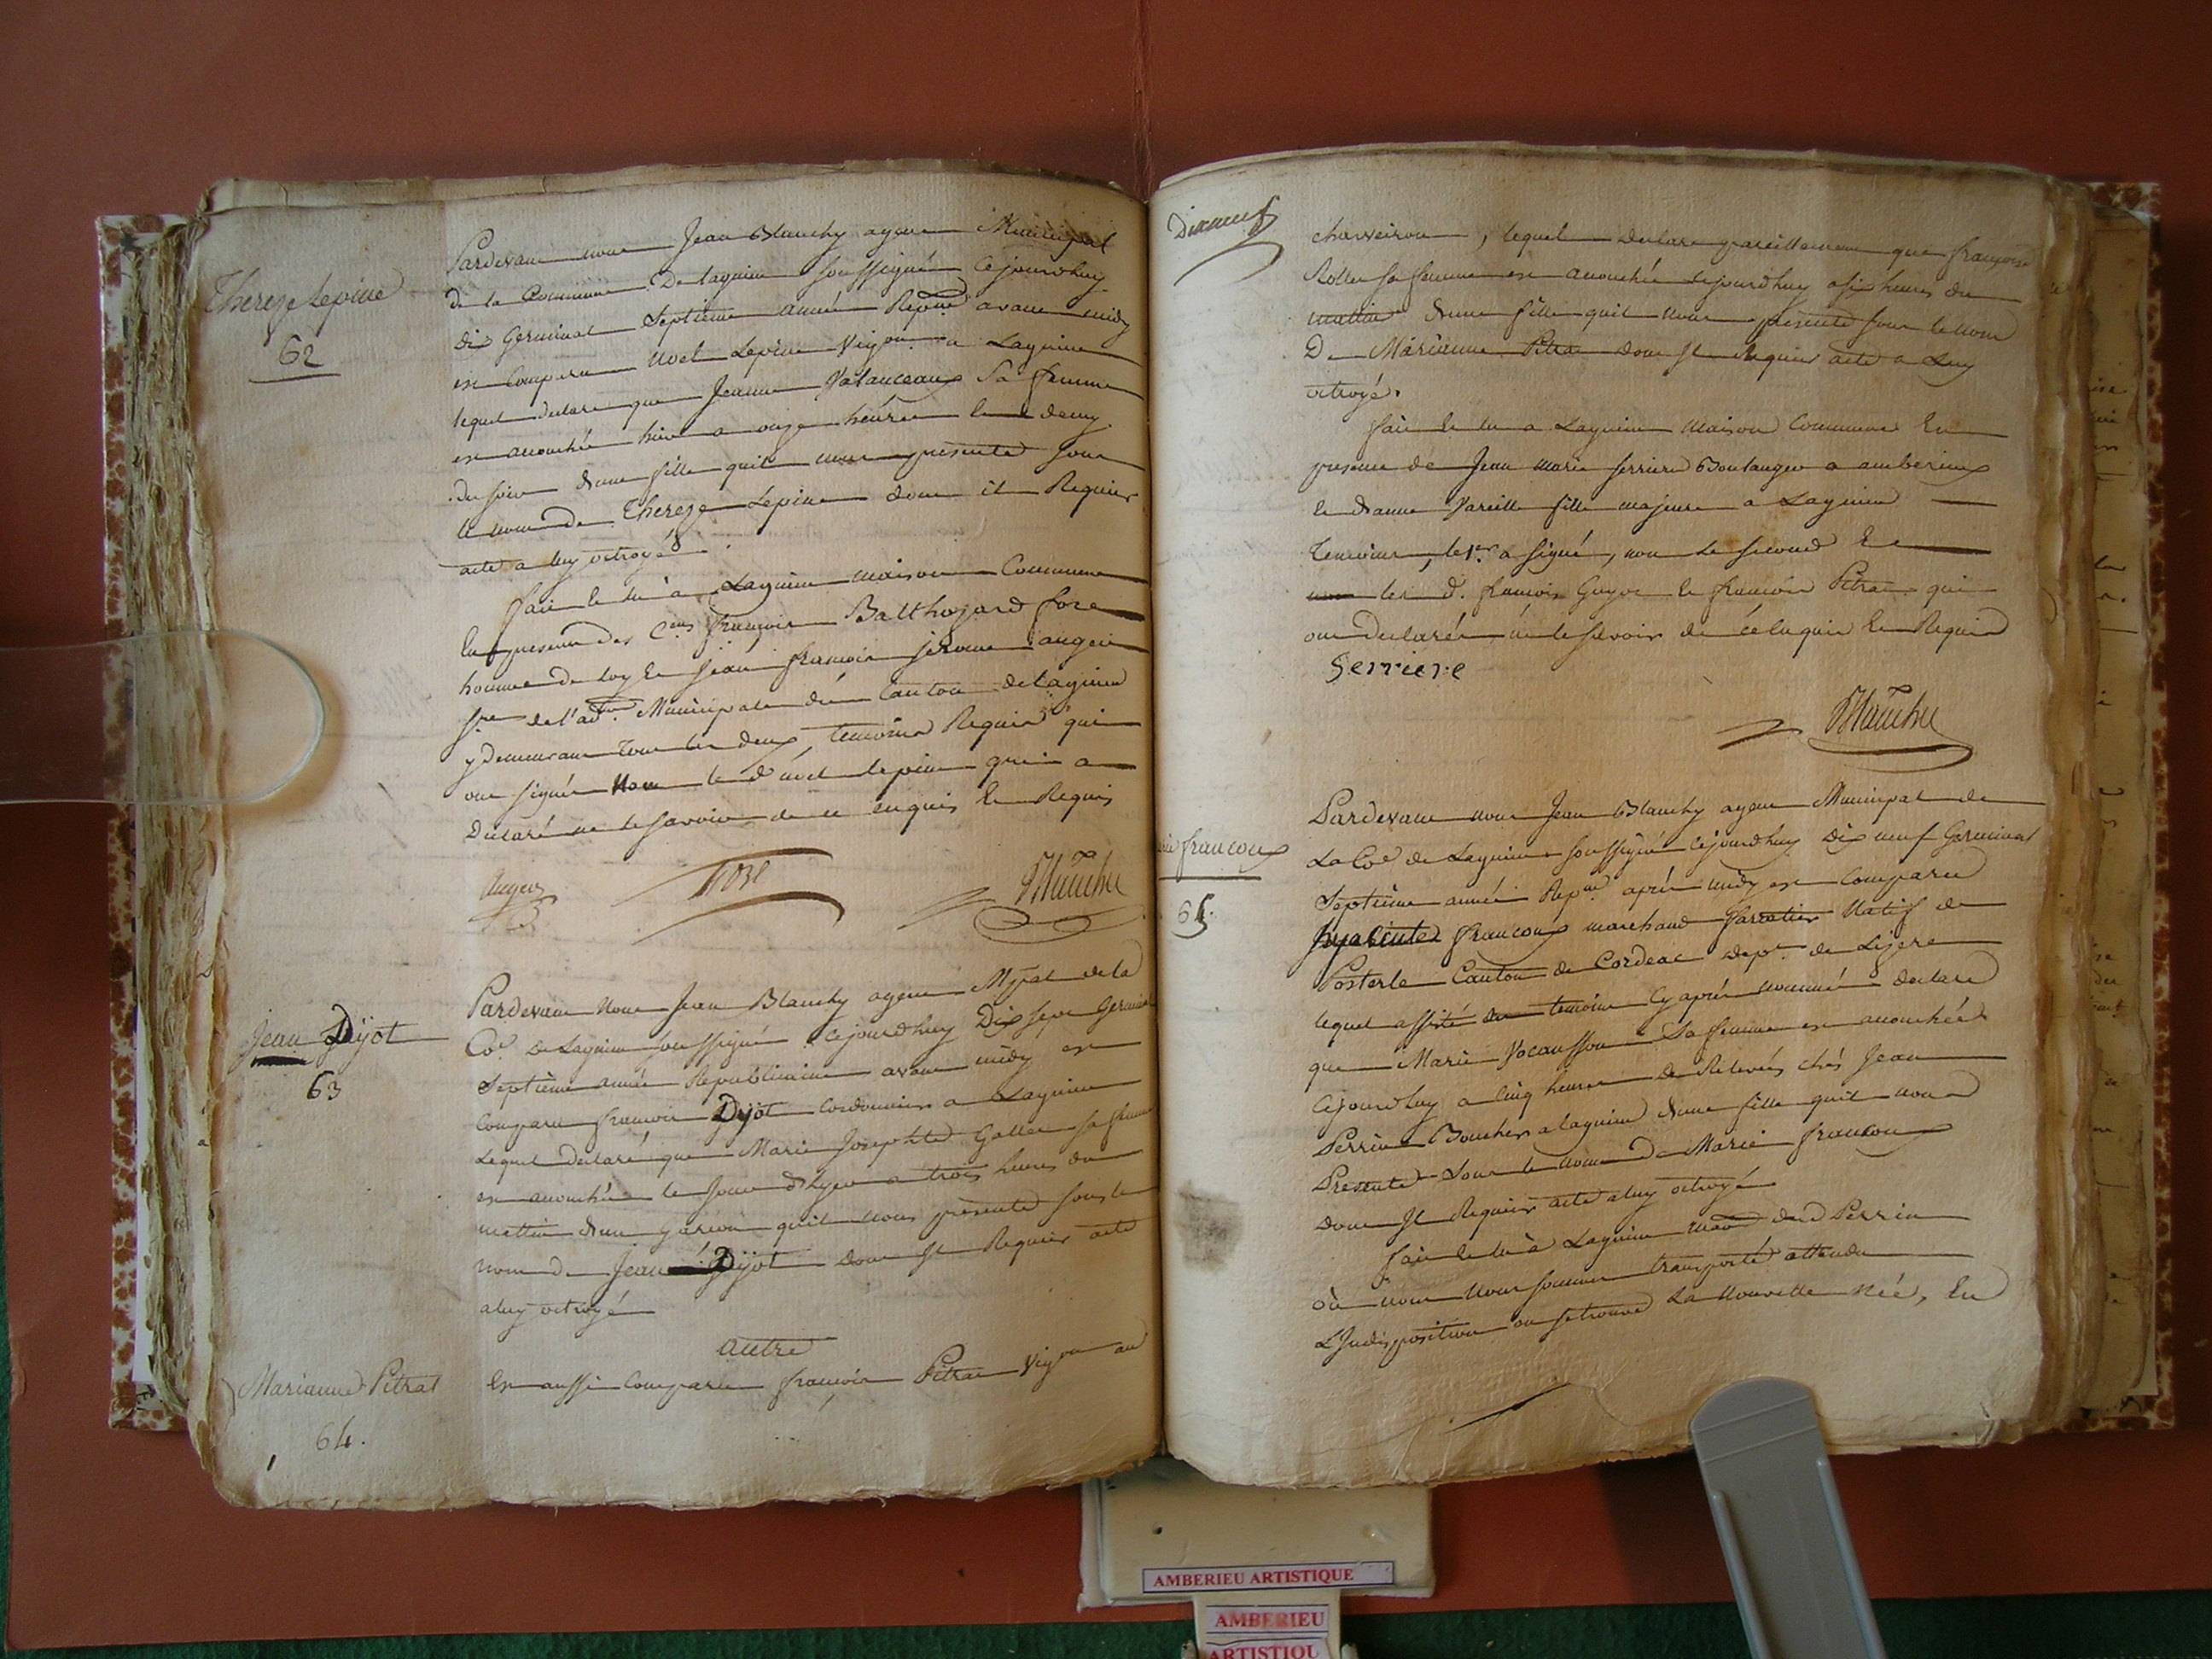 Thereze Lepine
62
Pardevant nous Jean Blanchy agent Municipal
de la Commune De lagnieu soussigné cejourdhuy
dix Germinal Septieme année Repne avant midy
est comparu noel Lepine Vigon a Lagnieu
lequel declare que Jeanne Valanceaux Sa femme
est acouchée hier a onze heures et demy
du soir dune fille quil nous presente sous
le nom de Thereze Lepine dont il Requier
acte a luy octroyé
fait et lu à Lagnieu maison Commune
En presence des Cens françois Balthazard fore
homme de loy et jean françois jerome auger
sre de l'adon Municipale du Canton de lagnieu
y demeurant tous les deux, temoins Requis qui
ont signés Non le d noel lepine qui a
Declaré ne le savoir de ce enquis et Requis
Auger fore Blanchy
Jean Dijot
63
Pardevant Nous Jean Blanchy agent Mpal de la
Coe De Lagnieu soussigné cejourdhuy Dix sept Germinal
Septième année Republicaine avant midy est
comparu françois Dijot cordonnier a Lagnieu
Lequel declare que Marie Josephte Gallet sa femme
est acouchée le jour d'hyer a trois heures du
mattin dun garçon quil nous présente sous le
nom de Jean Dijot dont Il Requier acte
a luy octroyé
autre
Marianne Pitrat
64.
Est aussi comparu françois Pitrat Vigon au
charveiron, lequel declare pareillement que françoise
Rollet sa femme est acouchée cejourdhuy a six heures du
mattin dune fille quil nous présente sous le nom
De Marianne Pitrat dont Il Requier acte a Luy
octroyé.
fait et lu a Lagnieu maison Commune En
presence de Jean marie ferriere Boulanger a amberieux
et danne Vareille fille majeure a Lagnieu
temoins, le 1er a signé, non le second Et
les d. françois Guyot et françois Pitrat qui
ont declarés ne le savoir de ce enquis et Requis
Ferriere
Blanchy
francoux
65.
Pardevant nous Jean Blanchy agent Municipal de
La Coe de Lagnieu soussigné cejourdhuy Dix neuf Germinal
Septième année Repne après midy est comparu
hyacinte francoux marchand Natif de
Posterle Canton de Cordeac Dept de Lizere
lequel assisté des temoins cy après nommés declare
que Marie Vocansson Sa femme est acouchée
cejourdhuy a cinq heures de Relevée chés Jean
Perrin Boucher a lagnieu dune fille quil nous
Presente Sous le nom De Marie francoux
dont Il Requier acte a luy octroyé
fait et lu à Lagnieu mon dud Perrin
où nous nous sommes transporté attendu
L'Indisposition ou se trouve La Nouvelle Née, En